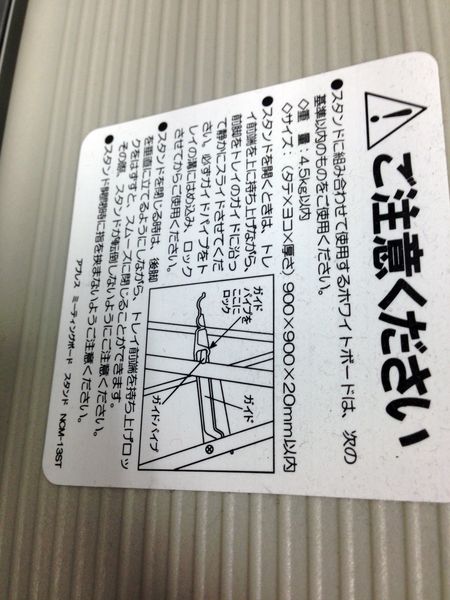 ご注意ください
●スタンドに組み合わせて使用するホワイトボードは、次の
基準以内のものをご使用ください。
◇重 量：4.5kg以内
◇サイズ：(タテ×ヨコ×厚さ) 900×900×20mm以内
●スタンドを開くときは、トレ
イ前端を上に持ち上げながら、
前脚をトレイのガイドに沿っ
て静かにスライドさせてくだ
さい。必ずガイドパイプをト
レイの溝にはめ込み、ロック
させてからご使用ください。
ガイド
パイプを
ここに
ロック
ガイド
ガイドパイプ
●スタンドを閉じる時は、後脚
を垂直に立てるようにしながら、トレイ前端を持ち上げロッ
クをはずすと、スムーズに閉じることができます。
その際、スタンドが転倒しないようにご注意ください。
●スタンド開閉時に指を挟まないようご注意ください。
アプレス ミーティングボード スタンド NCM-13ST